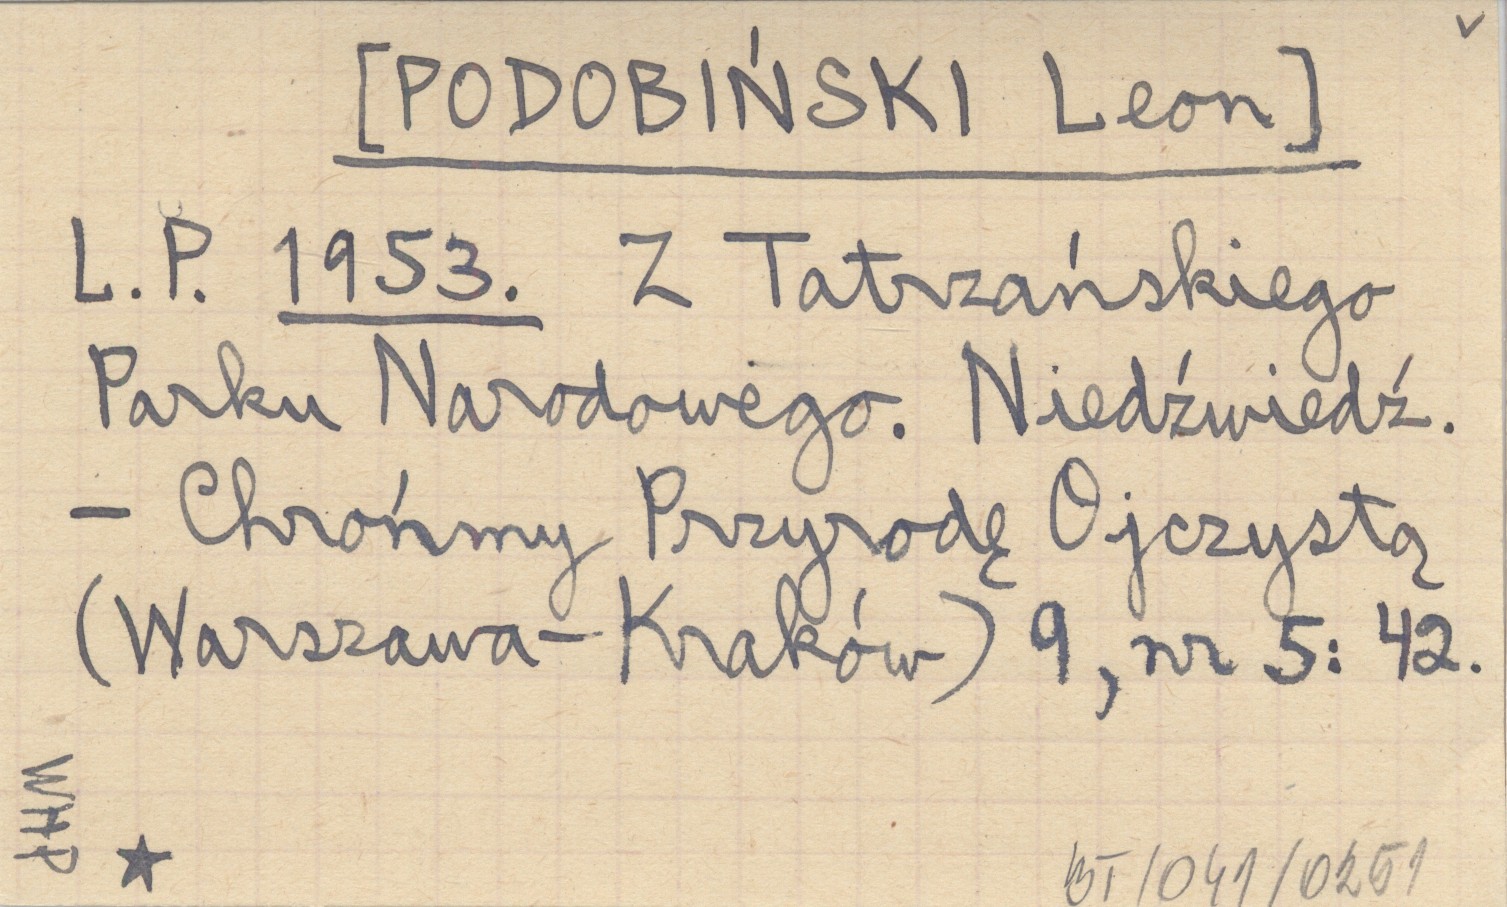 [PODOBIŃSKI Leon]
L.P. 1953. Z Tatrzańskiego
Parku Narodowego. Niedźwiedź.
- Chrońmy Przyrodę Ojczystą
(Warszawa-Kraków) 9, nr 5: 42.
WHP
BT/041/0251